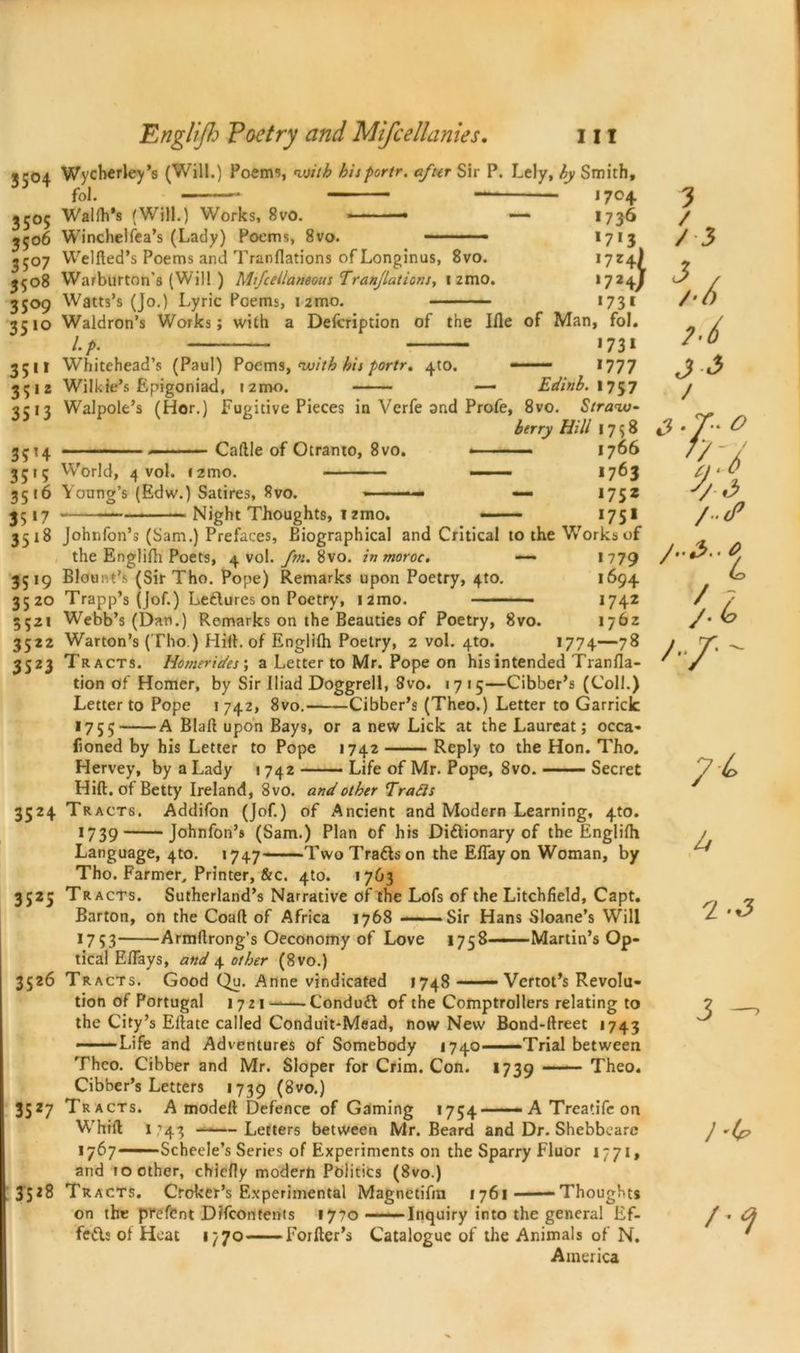 Engliſh Poetry and Miſcellanies. 111
3504 Wycherley's (Will.) Poems, with his portr. after Sir P. Lely, by Smith,
fol. —— —— —— 1704 3
3505 Walſh's (Will.) Works, 8vo. —— — 1736 /
3506 Winchelſea's (Lady) Poems, 8vo. —— 1713 /·3
3507 Welſted's Poems and Tranſlations of Longinus, 8vo. 1724}
3508 Warburton's (Will) Miſcellaneous Tranſlations, 12mo. 1724} 3
3509 Watts's (Jo.) Lyric Poems, 12mo. —— 1731 /·6
3510 Waldron's Works; with a Deſcription of the Iſle of Man, fol.
l.p. —— —— 1731 7·6
3511 Whitehead's (Paul) Poems, with his portr. 4to. —— 1777 3·3
3512 Wilkie's Epigoniad, 12mo. —— — Edinb. 1757 /
3513 Walpole's (Hor.) Fugitive Pieces in Verſe and Proſe, 8vo. Straw-
berry Hill 1758
3514 —— —— Caſtle of Otranto, 8vo. —— 1766
3515 World, 4 vol. 12mo. —— —— 1763
3516 Young's (Edw.) Satires, 8vo. —— — 1752
3517 —— —— Night Thoughts, 12mo. —— 1751
3518 Johnſon's (Sam.) Prefaces, Biographical and Critical to the Works of
the Engliſh Poets, 4 vol. ſm. 8vo. in moroc. — 1779
3519 Blount's (Sir Tho. Pope) Remarks upon Poetry, 4to. 1694
3520 Trapp's (Joſ.) Lectures on Poetry, 12mo. —— 1742
3521 Webb's (Dan.) Remarks on the Beauties of Poetry, 8vo. 1762
3522 Warton's (Tho.) Hiſt. of Engliſh Poetry, 2 vol. 4to. 1774—78
3523 Tracts. Homerides; a Letter to Mr. Pope on his intended Tranſla-
tion of Homer, by Sir Iliad Doggrell, 8vo. 1715—Cibber's (Coll.)
Letter to Pope 1742, 8vo.——Cibber's (Theo.) Letter to Garrick
1755——A Blaſt upon Bays, or a new Lick at the Laureat; occa-
ſioned by his Letter to Pope 1742——Reply to the Hon. Tho.
Hervey, by a Lady 1742——Life of Mr. Pope, 8vo.——Secret
Hiſt. of Betty Ireland, 8vo. and other Tracts 7·6
3524 Tracts. Addiſon (Joſ.) of Ancient and Modern Learning, 4to.
1739——Johnſon's (Sam.) Plan of his Dictionary of the Engliſh
Language, 4to. 1747——Two Tracts on the Eſſay on Woman, by
Tho. Farmer, Printer, &c. 4to. 1763 4
3525 Tracts. Sutherland's Narrative of the Loſs of the Litchfield, Capt.
Barton, on the Coaſt of Africa 1768——Sir Hans Sloane's Will
1753——Armſtrong's Oeconomy of Love 1758——Martin's Op-
tical Eſſays, and 4 other (8vo.) 2·3
3526 Tracts. Good Qu. Anne vindicated 1748——Vertot's Revolu-
tion of Portugal 1721——Conduct of the Comptrollers relating to
the City's Eſtate called Conduit-Mead, now New Bond-ſtreet 1743
——Life and Adventures of Somebody 1740——Trial between
Theo. Cibber and Mr. Sloper for Crim. Con. 1739——Theo.
Cibber's Letters 1739 (8vo.) 3 —
3527 Tracts. A modeſt Defence of Gaming 1754——A Treatiſe on
Whiſt 1743——Letters between Mr. Beard and Dr. Shebbeare
1767——Scheele's Series of Experiments on the Sparry Fluor 1771,
and 10 other, chiefly modern Politics (8vo.) /·6
3528 Tracts. Croker's Experimental Magnetiſm 1761——Thoughts
on the preſent Diſcontents 1770——Inquiry into the general Ef-
fects of Heat 1770——Forſter's Catalogue of the Animals of N. /·9
America